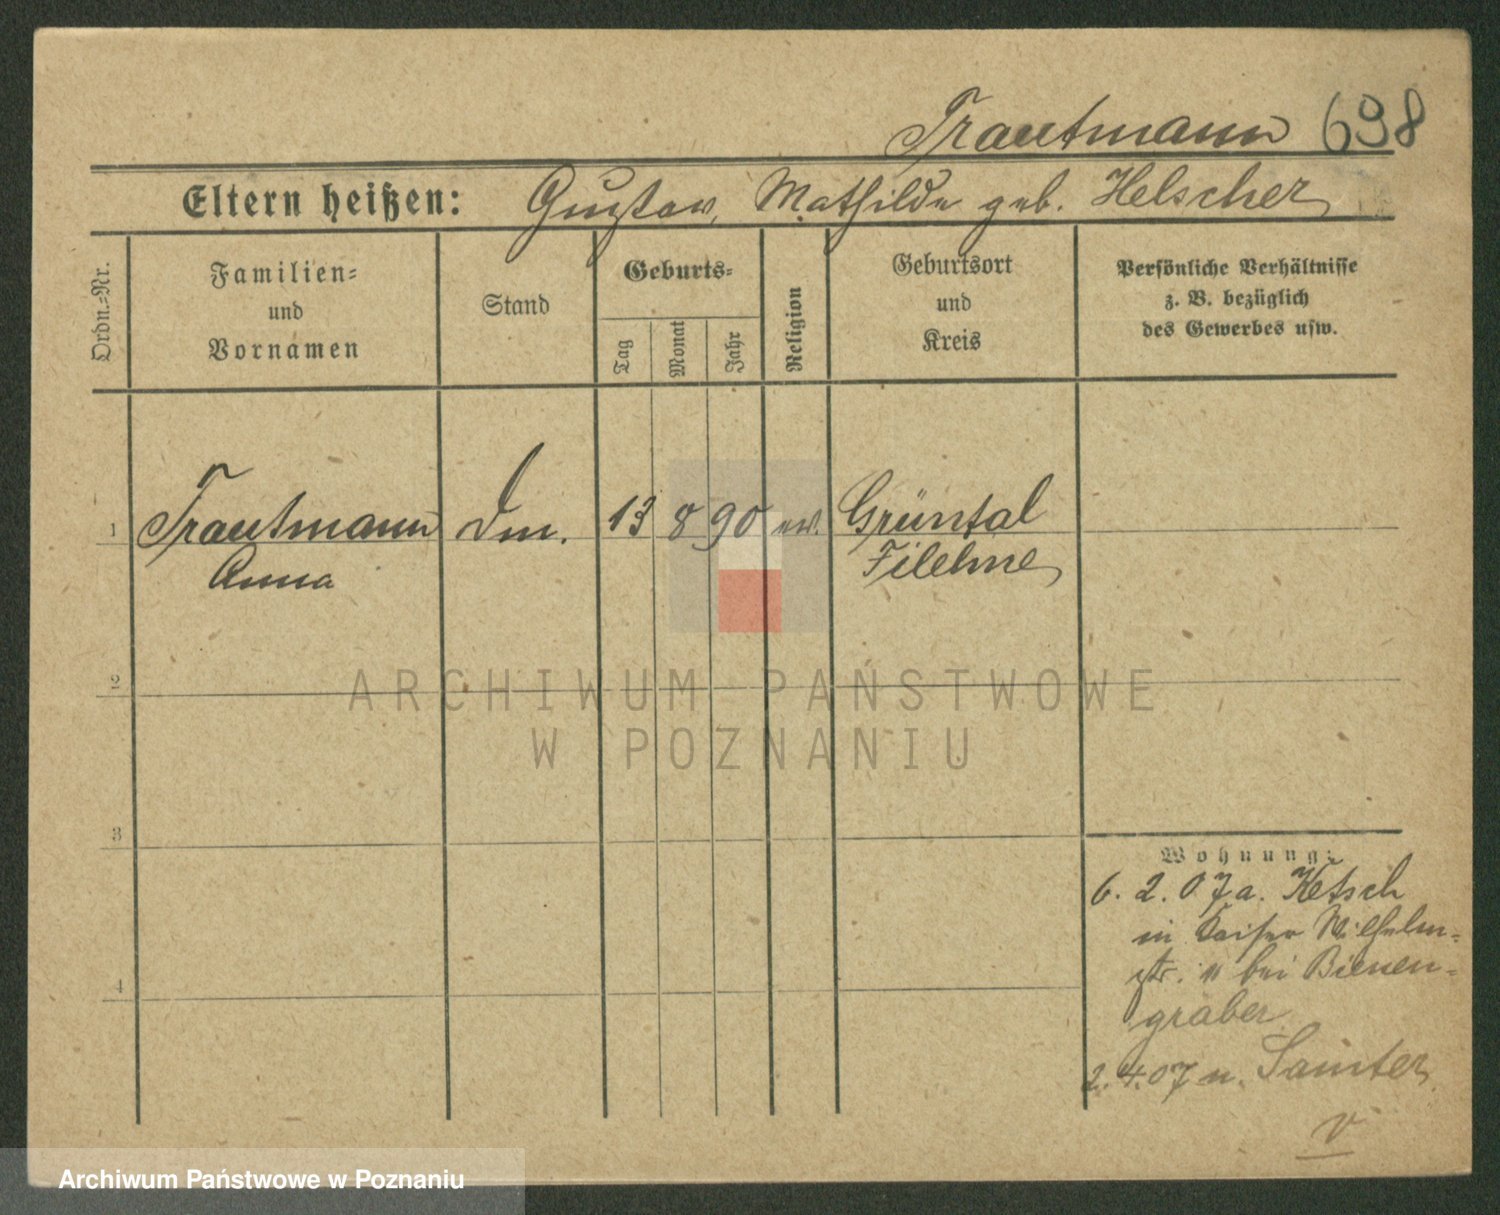 Trautmann 698
Eltern heißen: Gustav, Mathilde geb. Helscher
Ordn.-Nr.
Familien-
und
Vornamen
Stand
Geburts-
Tag
Monat
Jahr
Religion
Geburtsort
und
Kreis
Persönliche Verhältnisse
z. B. bezüglich
des Gewerbes usw.
1 Trautmann Dm. 13 8 90 ev. Grüntal
Anna Filehne
2
ARCHIWUM PAŃSTWOWE
W POZNANIU
3
Wohnung:
6. 2. 07 a. Ketsch
in Kaiser Wilhelm-
str. 11 bei Bienen-
4
graber
2. 4. 07 n. Samter
v
Archiwum Państwowe w Poznaniu